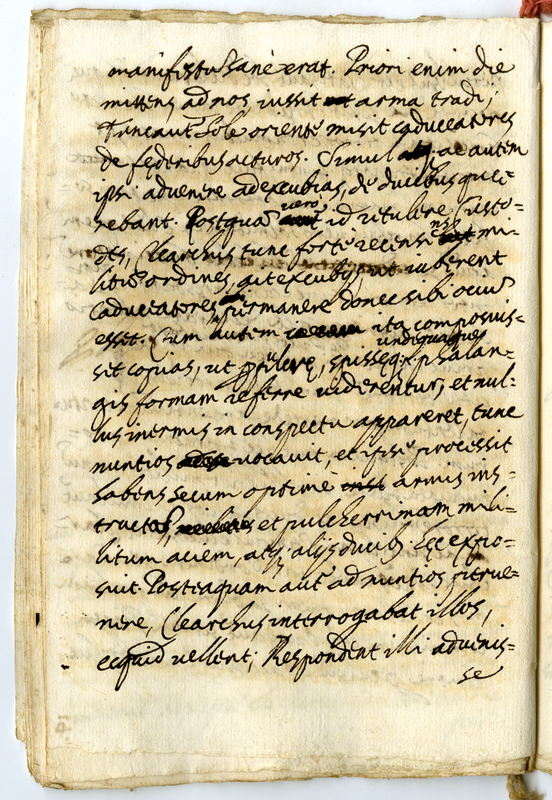 manifestu sane erat. Priori enim die
mittens ad nos, iussit arma tradi;
Tunc aut Sole oriente misit caduceatores
de fęderibus acturos. Simul ac autem
ipsi advenere ad excubias, de ducibus quęre-
rebant. Postqua vero id retulere Custo-
des, Clearchus tunc forte recensens mi-
litu ordines, ait excubijs, ut iuberent
Caduceatores permanere donec sibi ociu
esset. Cum autem ita composuis-
set copias, ut undiquaque phalan-
gis formam referre viderentur, et nul-
lus inermis in conspectu appareret, tunc
nuntios vocavit, et ipse processit
habens secum optime armis ins-
tructa, et pulcherrimam mili-
litum aciem, atq; alijs ducib; hęc expo-
suit. Posteaquam aut ad nuntios pervę-
nere, Clearchus interrogabat illos,
ecquid vellent; Respondent illi advenis-
se